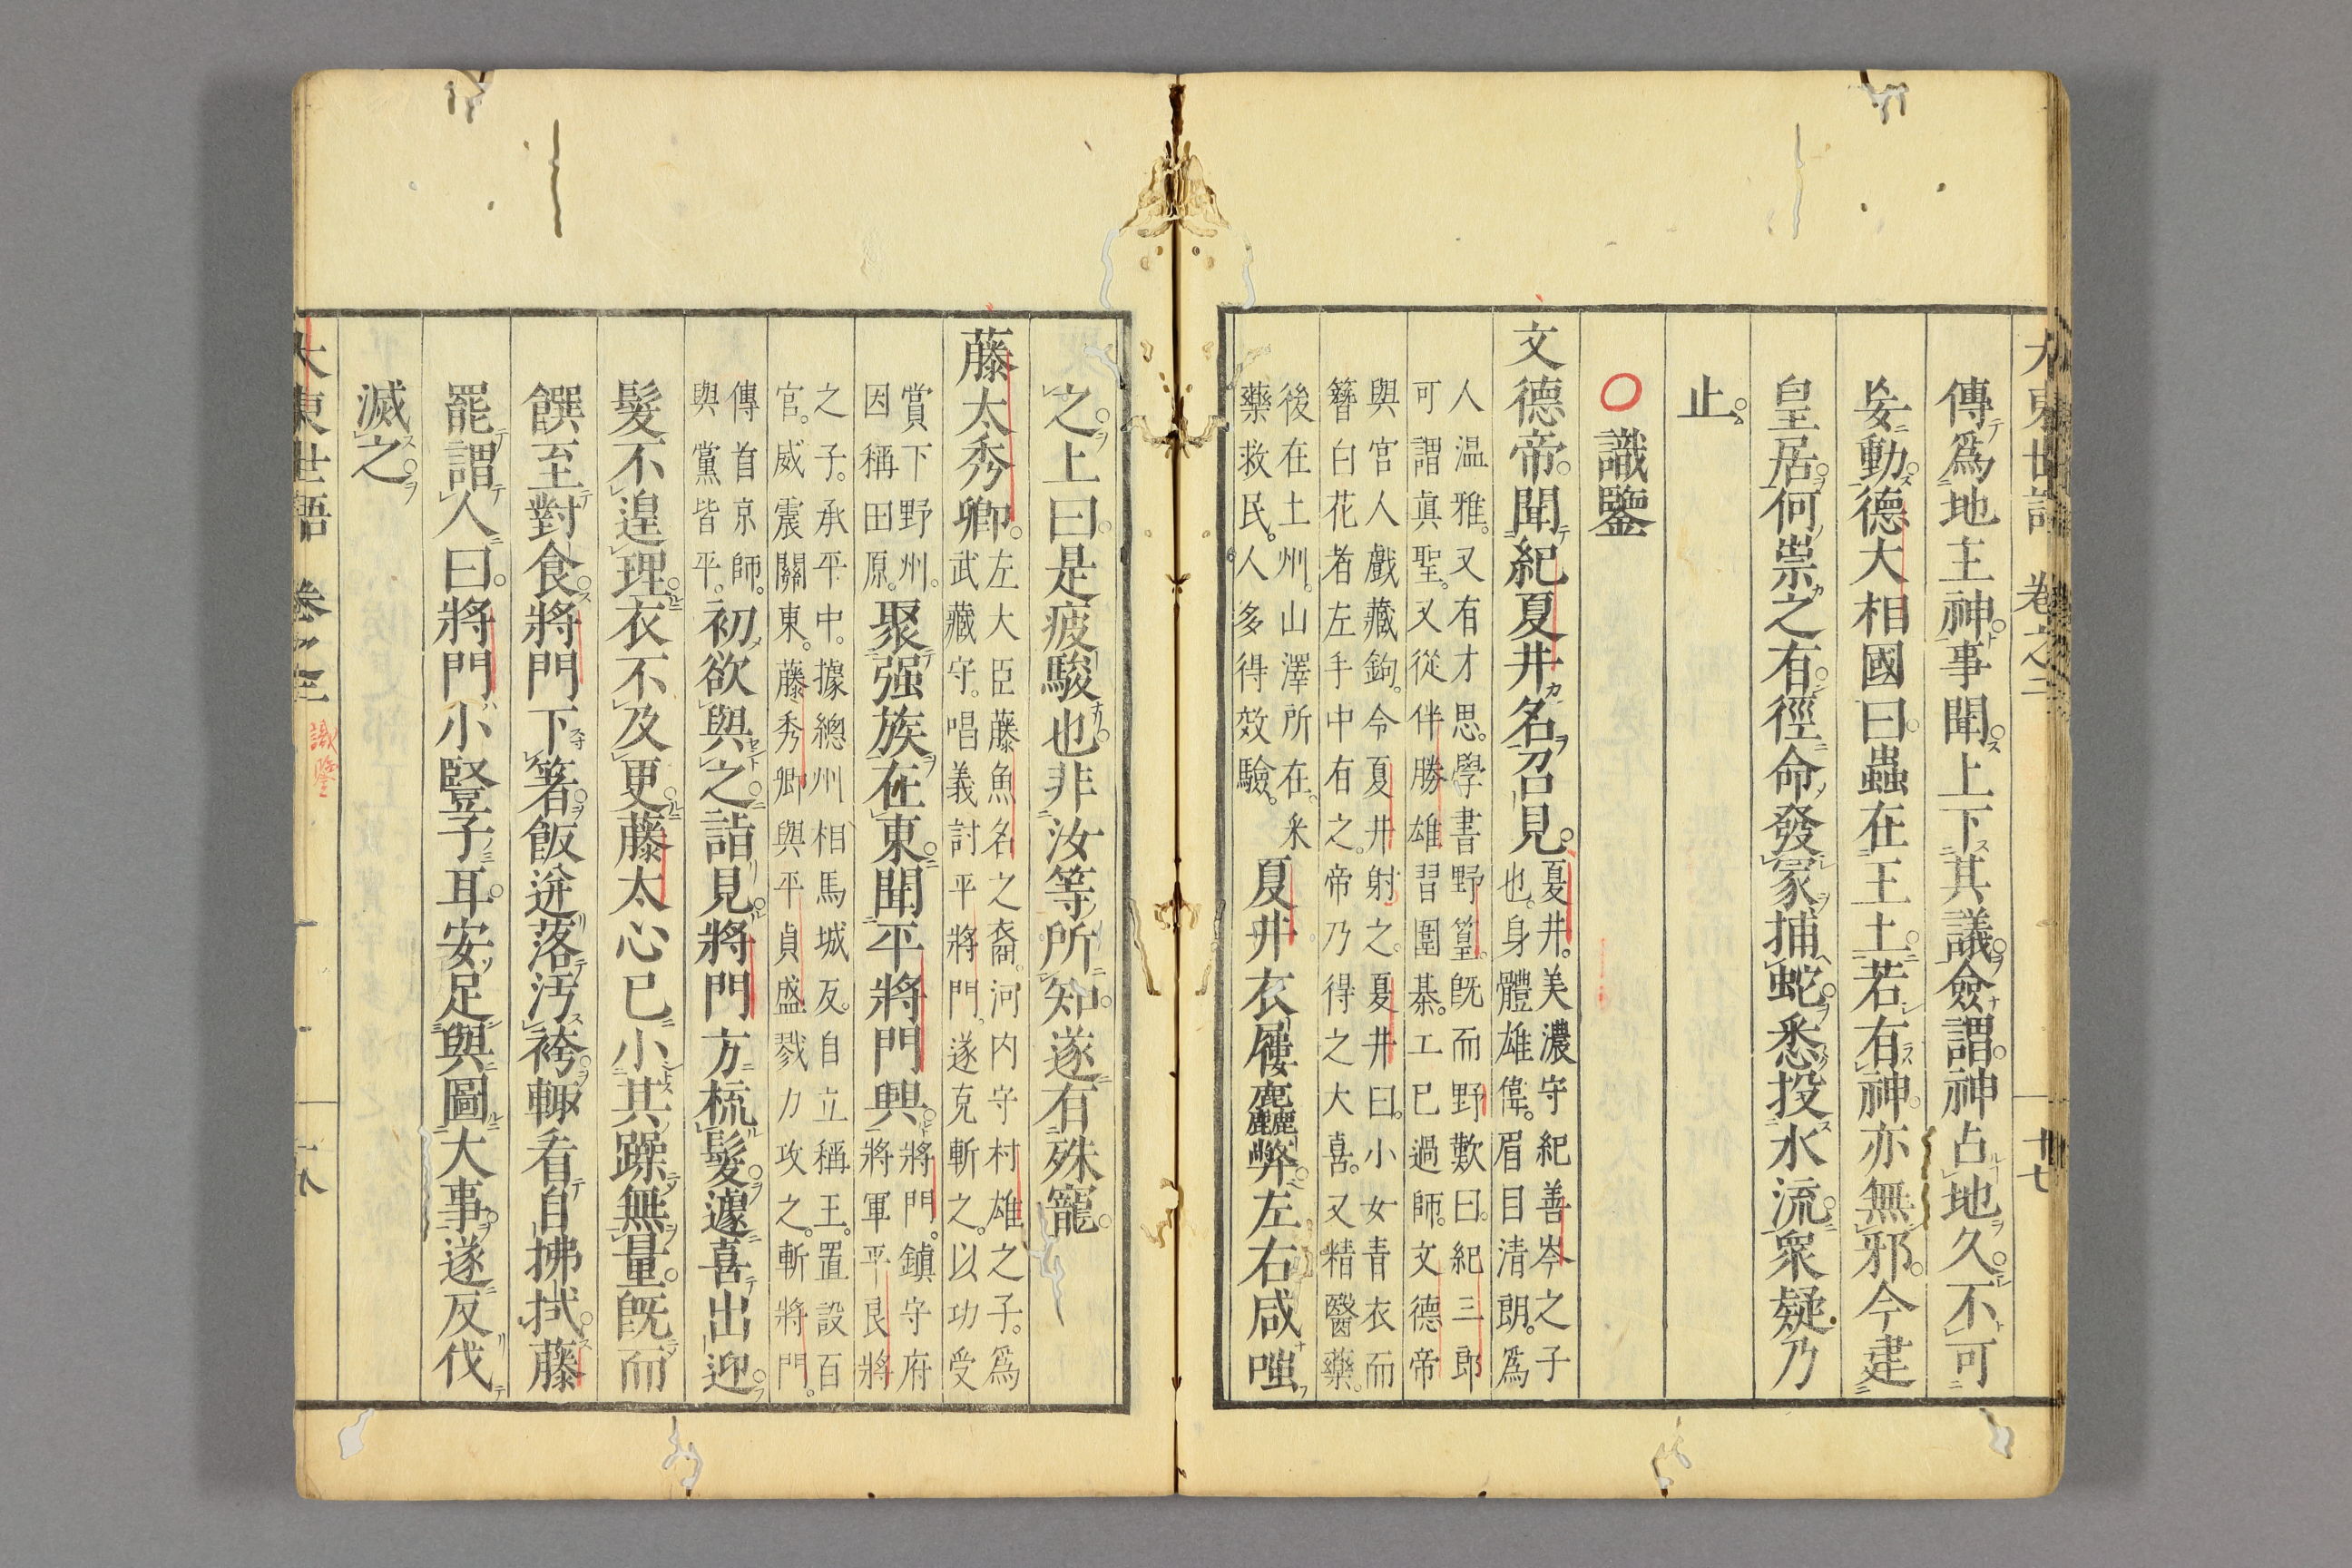 大東世語 卷之二 廿七
傳爲地主神事聞上下其議僉謂神占地久不可
妄動德大相國曰蟲在王土若有神亦無邪今建
皇居何祟之有徑命發冢捕蛇悉投水流衆疑乃
止
識鑒
文德帝聞紀夏井名召見
夏井美濃守紀善岑之子
也身體雄偉眉目清朗爲
人温雅又有才思學書野篁既而野歎曰紀三郎
可謂眞聖又從伴勝雄習圍棊工巳過師文德帝
與官人戲藏鉤令夏井射之夏井曰小女青衣而
簪白花者左手中有之帝乃得之大喜又精醫藥
後在土州山澤所在采
藥救民人多得效驗
夏井衣屨麤弊左右咸嗤
之上曰是疲駿也非汝等所知遂有殊寵
藤太秀卿
左大臣藤魚名之裔河内守村雄之子爲
武藏守唱義討平將門遂克斬之以功受
賞下野州
因稱田原
聚强族在東聞平將門興
將門鎮守府
將軍平良將
之子承平中據總州相馬城反自立稱王置設百
官威震關東藤秀卿與平貞盛戮力攻之斬將門
傳首京師
與黨皆平
初欲與之詣見將門方梳髮遽喜出迎
髮不遑理衣不及更藤太心已小其躁無量既而
饌至對食將門下箸飯迸落汚袴輙看自拂拭藤
罷謂人曰將門小豎子耳安足與圖大事遂反伐
滅之
大東世語 卷之二
識鑒